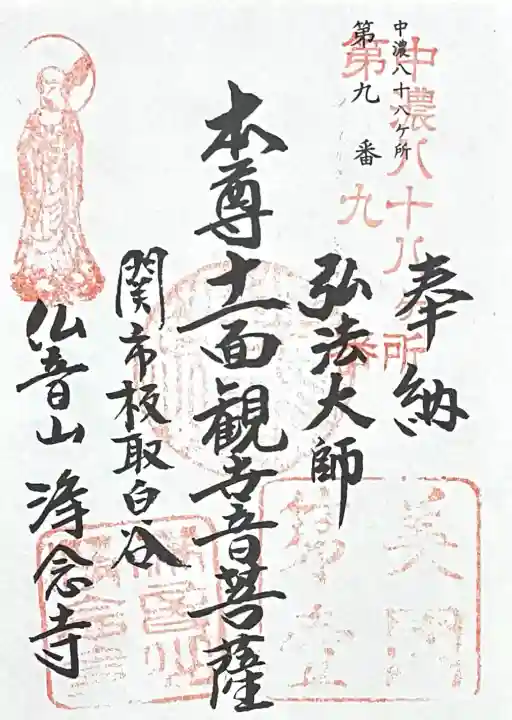 中濃八十八ヶ所
第九番
中濃八十八ヶ所
第九番
奉納
弘法大師
本尊十一面観世音菩薩
関市板取白谷
仏音山 浄念寺